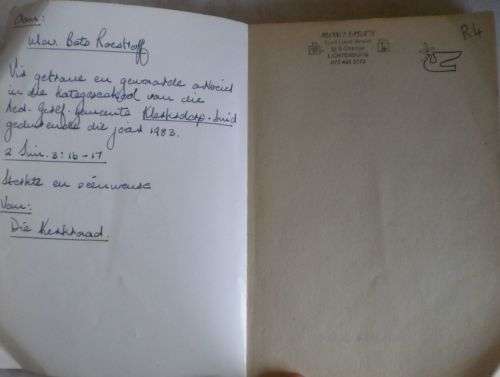 Aan:
Mev. Bets Roestoff
Vir getroue en gewaardeerde arbeid
in die kategeseskool van die
Ned. Geref. Gemeente Klerksdorp-Suid
gedurende die jaar 1983.
2 Tim. 3:16-17
Sterkte en seënwense
Van:
Die Kerkraad.
R4